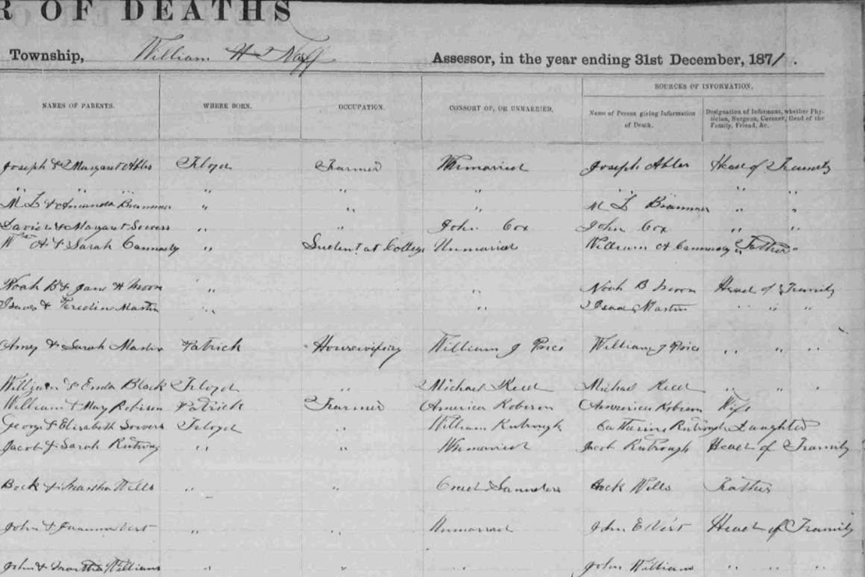 R OF DEATHS
Township, William H Naff Assessor, in the year ending 31st December, 1871.
SOURCES OF INFORMATION.
NAMES OF PARENTS. WHERE BORN. OCCUPATION. CONSORT OF, OR UNMARRIED. Name of Person giving Information of Death. Designation of Informant, whether Physician, Surgeon, Coroner, Head of the Family, Friend, &c.
Joseph & Margaret Abler Floyd Farmer Unmarried Joseph Abler Head of Family
" " " " " " "
M L & Amanda " " " M L " "
& Margaret Sowers " John Cox John Cox " "
Wm H & Sarah " Student at College Unmaried William H Father
Noah B & Jane H Moon " " Noah B Moon Head of Family
Isaac & Martin " " Isaac Martin " " "
Amey & Sarah Martin Patrick Housewifery William J Price William J Price " " "
& Black Floyd " Michael Reed Michael Reed " "
William & May Roberson Patrick Farmer America Roberson America Roberson Wife
George & Elizabeth Sowers Floyd " William Catharine Daughter
Jacob & Sarah " " Unmarried Jacob Head of Family
Bock & Martha Wills " " Saunders Bock Wills Father
John & " " Unmarried John E Head of Family
John & Martha Williams " " " John Williams " " "